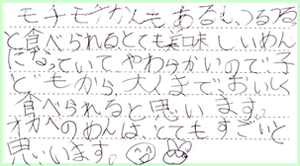 モチモチかんも、あるし、つるつる
と食べられるとても美味しいめん
になっていてやわらかいので子
どもから、大人まで、おいしく
食べられると思います。
オカベのめんは、とてもすごいと
思います。